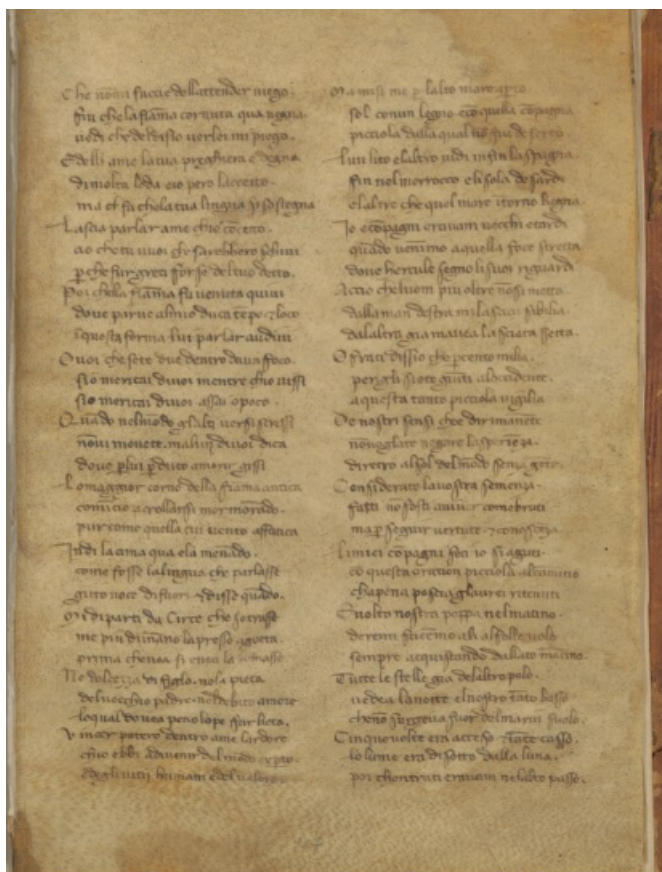 Che non mi facci dellattender niego
fin che la fiama cornuta qua vegna
vedi che del disio ver lei mi piego.
Edelli ame latua preghiera e degna
dimolta loda eio pero laccetto
ma fa chela tua lingua si sostegna
Lascia parlar ame chio co cetto
cio che tu vuoi che sarebbero schivi
p che fur greci forse del tuo detto.
Poi chella fiama fu venuta quivi
dove parve almio duca tepo e loco
i questa forma lui parlar audivi
O voi che sete due dentro duna foco.
sio meritai divoi mentre chio vissi
sio meritai divoi assai o poco.
Quado nelmodo glalti versi scrissi
no vi movete. ma lun divoi dica
dove p lui p duto amorir gissi
Lomaggior corno della fiama antica
comicio a crollarsi mormorado.
pur come quella cui vento affatica
Indi la cima qua ela menado.
come fosse la lingua che parlasse
gitto voce di fuori e disse quado.
Mi diparti da Circe che sotrasse
me piu dunano la presso a gaeta
prima che si enea la nomasse
Ne dolcezza di figlo. nela pieta
del vecchio padre. nel debito amore
loqual dovea penolope far lieta.
Vincer potero dentro ame lardore
chio ebbi a divenir del modo experto
e degli vitii humani e del valore.
Ma misi me p lalto mare aperto
sol con un legno e co quella copagna
picciola dalla qual no fui deserto
Lun lito e laltro vidi infin la spagna
fin nel morrocco e lisola de sardi
e laltre che quel mare itorno bagna.
Io e copagni eravam vecchi e tardi
quado venimo a quella foce stretta
dove hercule segno li suoi riguardi
Accio che luom piu oltre no si metta.
dalla man destra mi lasciai sibilia
dalaltra gia mavea lasciata setta.
O frati dissio che p cento milia.
perigli siete giunti aloccidente.
a questa tanto picciola vigilia
De nostri sensi che di rimanete
no voglate negare lasperieza.
diretro al sol del modo senza gete.
Considerate la vostra semenza
fatti no fosti a viver come bruti
ma p seguir vertute e conoscenza
Li miei copagni feci io si aguti.
co questa oration picciola al camino
cha pena poscia glavrei ritenuti
E volto nostra poppa nel matino.
de remi facemo ali al folle volo
sempre acquistando dal lato macino.
Tutte le stelle gia delaltro polo.
vedea la notte el nostro tato basso
che no surgeva fuor del marin suolo.
Cinque volte era acceso e tate casso.
lo lume era di sotto dalla luna.
poi chontrati eravam nelalto passo.